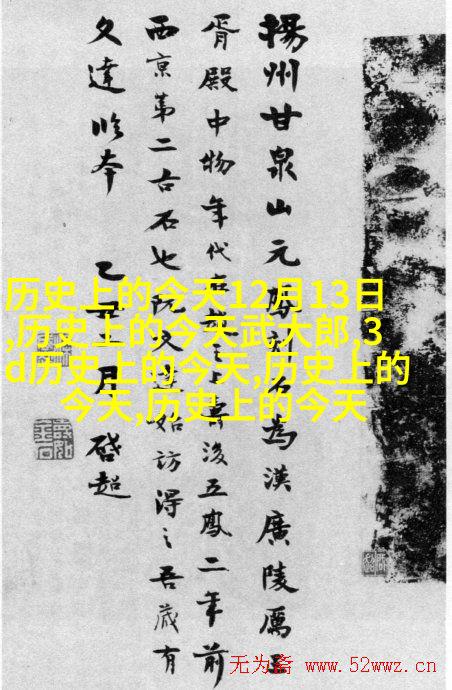 揚州甘泉山元為漢廣陵厲王
胥殿中物年代後五鳳二年前
西京第二古石也阮始訪得之吾藏有
文達本 乙丑月 啓超
历史上的今天12月13日
,历史上的今天武大郎,3
d历史上的今天,历史上的
今天,历史上的今天
无为斋 www.52wwz.cn